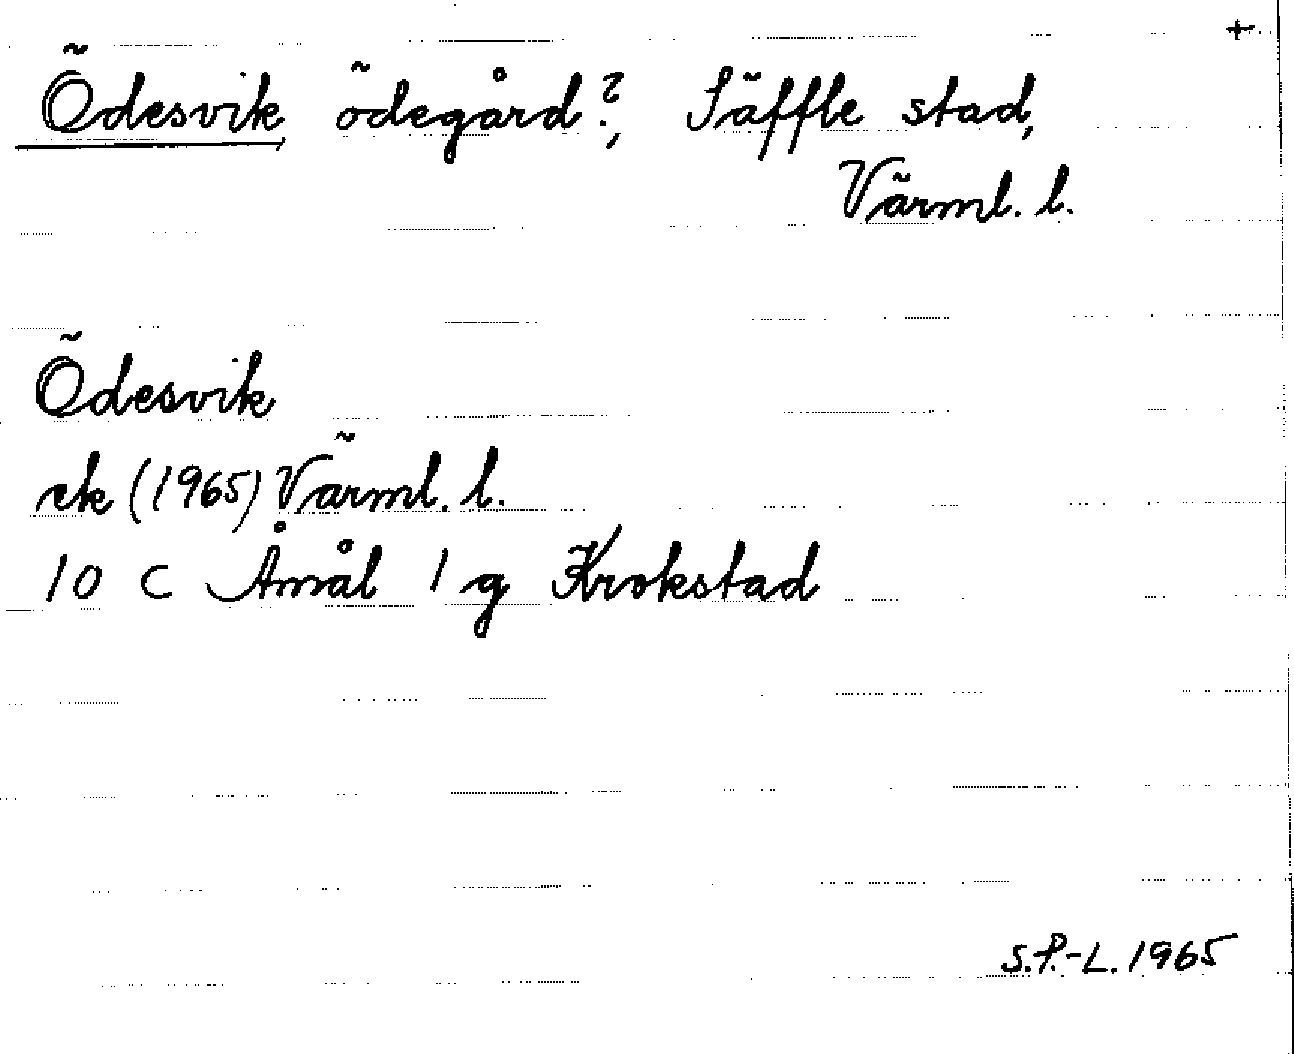 +
Ödesvik, ödegård?, Säffle stad,
Värml. l.
Ödesvik
ek (1965) Värml. l.
10 C Åmål 1 g Krokstad
S.P.-L. 1965